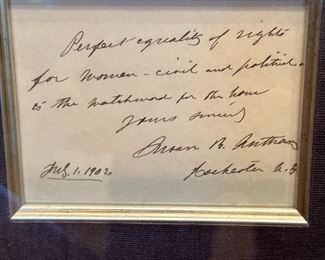 Perfect equality of rights
for women - civil and political -
is the watchword for the hour
Yours sincerely
Susan B. Anthony
July. 1. 1902. Rochester N.Y.